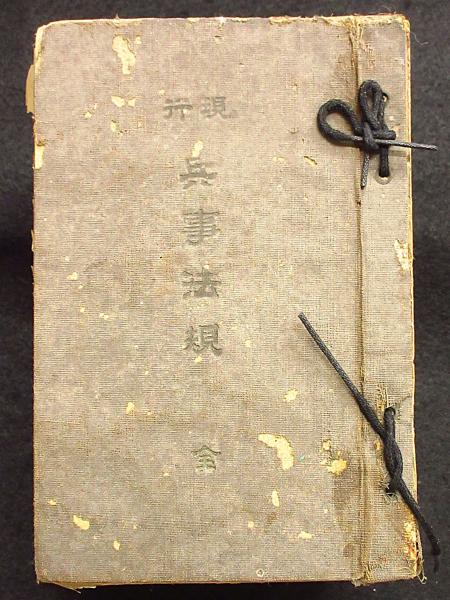 現行
兵事法規
全